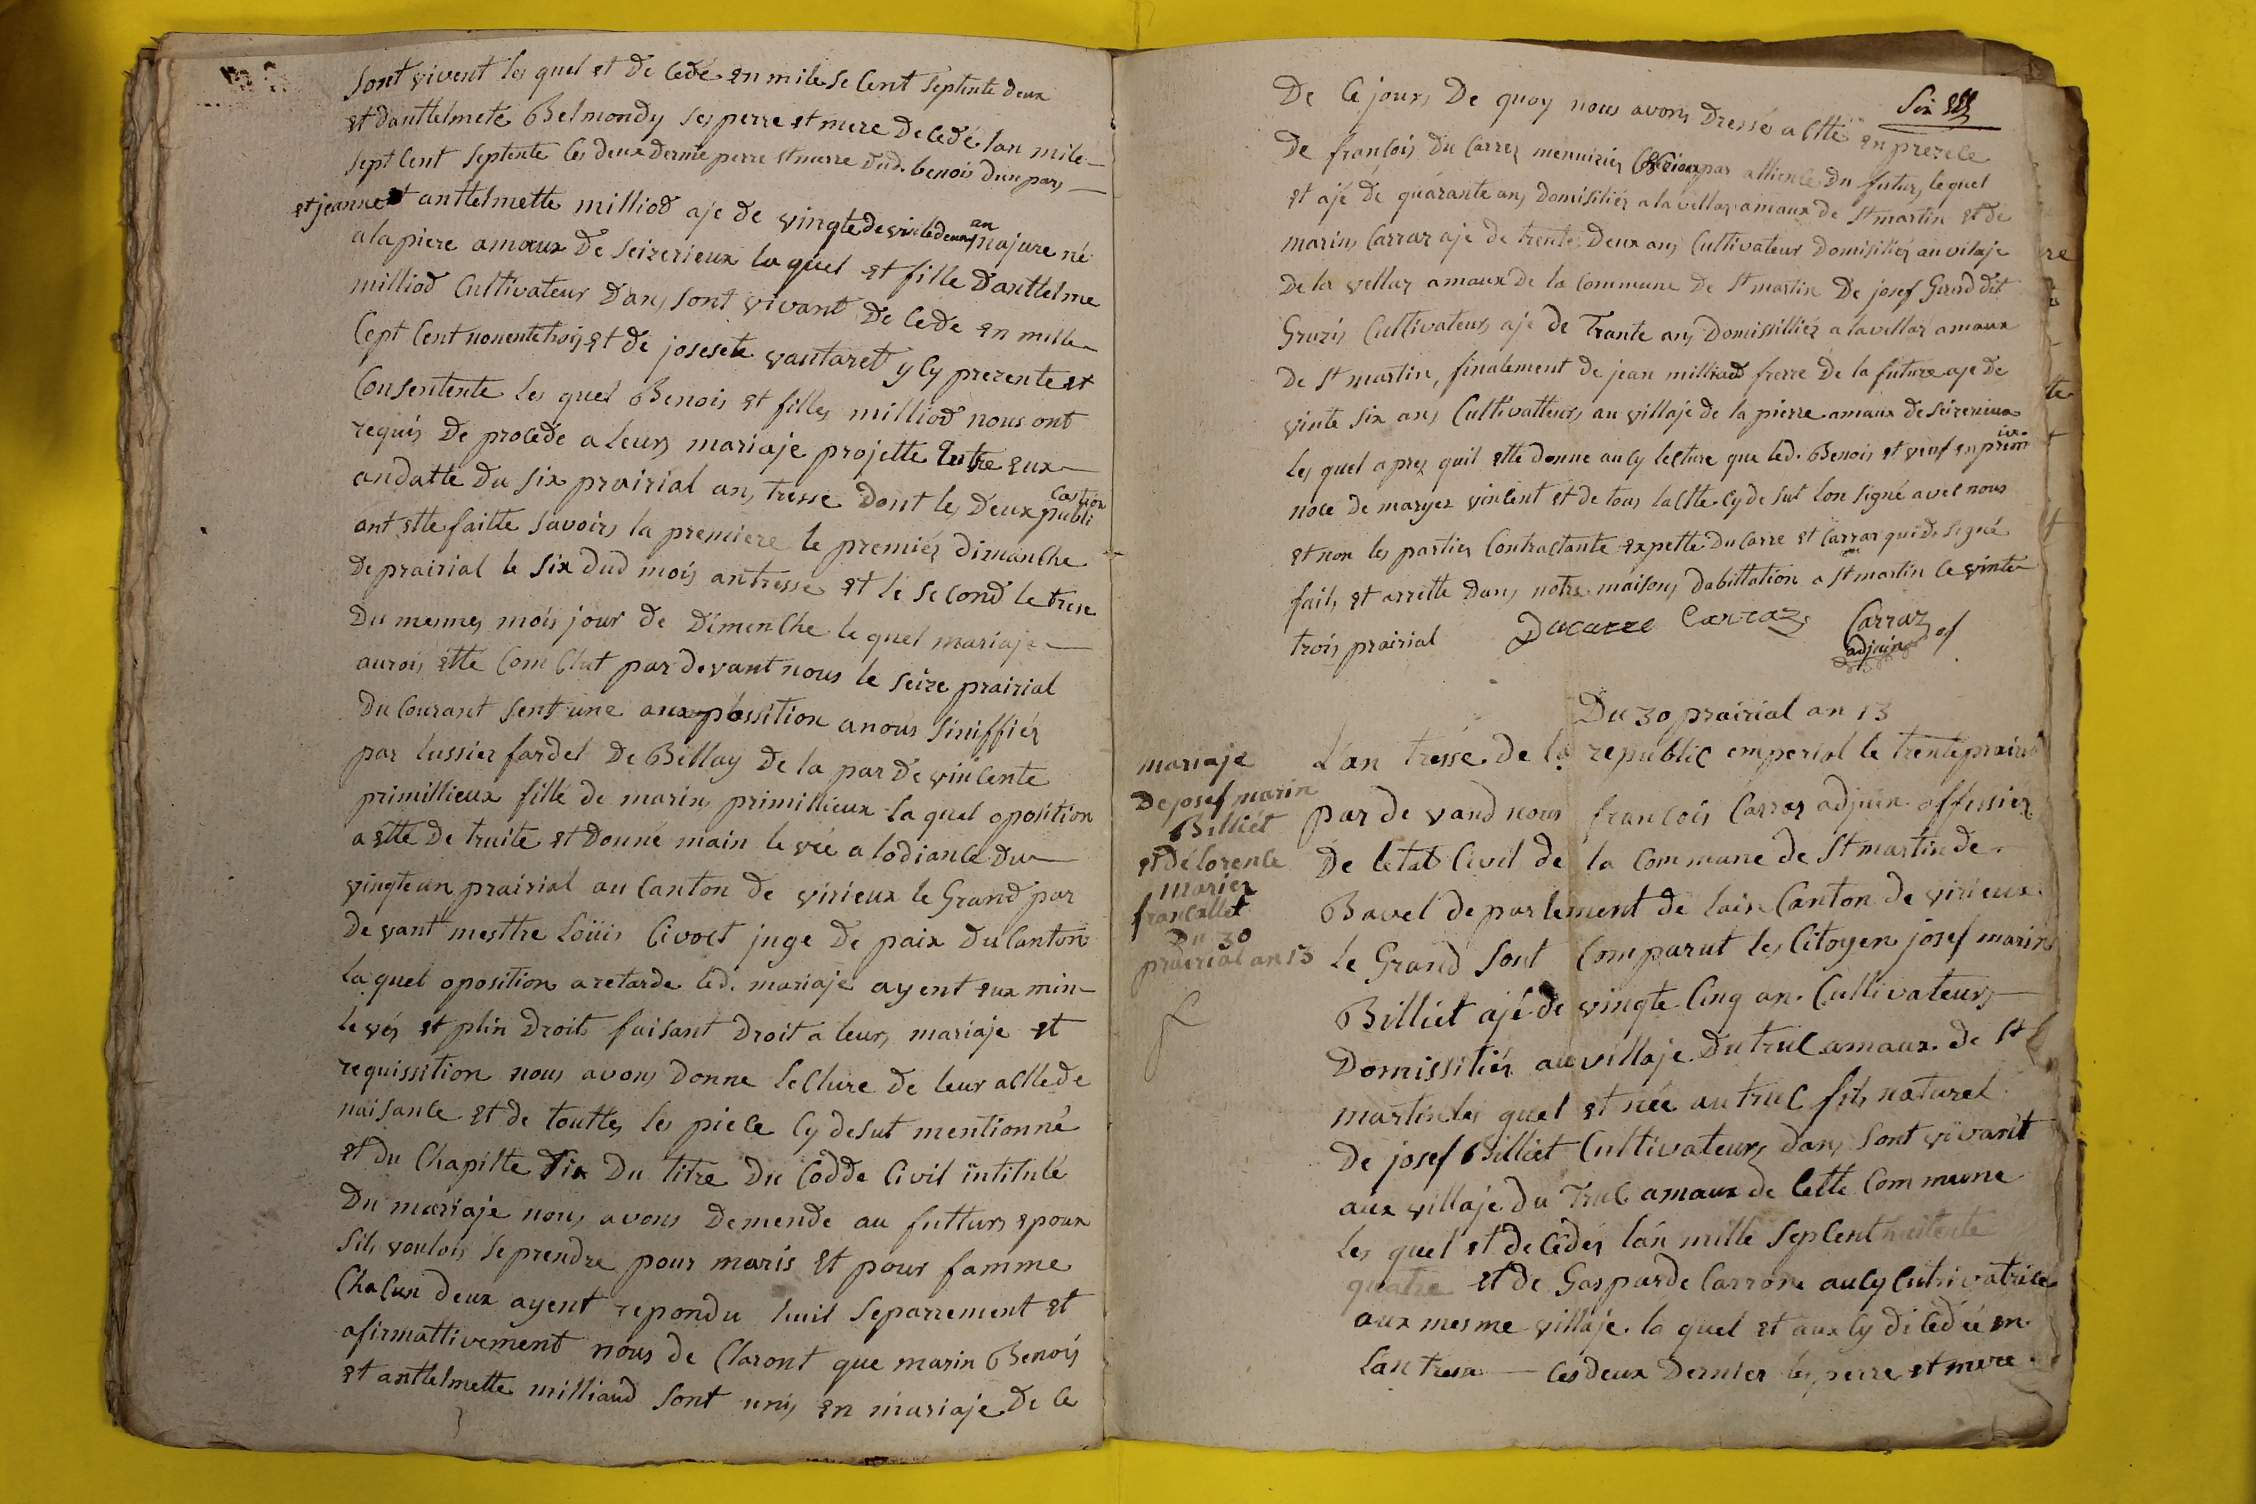 sont vivent les quel et de cedé en mile se cent septente deux
et danttelmete Belmondy ses perre et mere decedé lan mile
sept cent septente les deux dernie perre et merre dud. benois dun pars
et jeanne et anttelmette milliod aje de vingte deux an majure né
a la piere amaux de seizerieux la quel et fille danttelme
milliod Cultivateur dans sont vivant de cede en mille
cept cent nonente trois et de josesete vautaret y cy prezente et
Consentente les quel Benois et filles milliod nous ont
requis de procede a leurs mariaje projette Entre eux
andatte du six prairial an tresse dont les deux publi
cation
ont ette faitte savoirs la premiere le premier dimanche
de prairial le six dud mois antresse et le second le trese
du mesmes mois jour de dimenche le quel mariaje
aurois ette com clut par devant nous le seize prairial
du courant sent une aux possition a nous siniffiér
par lussier fardel de Bellay de la par de vincente
primillieux fille de marin primillieux la quel oposition
a ette de truite et donné main levée a lodiance du
vingte un prairial au canton de virieux le Grand par
devant mesttre Loüis Civoct juge de paix du canton
la quel oposition a retarde led. mariaje ayent eux min
levés et plin droit faisant droit a leurs mariaje et
requissition nous avons donne leclure de leur acttede
naisance et de touttes les piece cy desut mentionné
et du chapitte six du titre du codde Civil intitulé
du mariaje nous avons demende au futturs epoux
sils voulois se prendre pour maris et pour famme
chacun deux ayent repondu huil separrement et
afirmattivement nous de claront que marin Benois
et anttelmette milliaud sont unis en mariaje de ce
Six
De ce jours De quoy nous avons dressé actte en prezece
de françois du Carrez mennizier par allience du futur, lequel
et ajé de quarante ans domisiliér a la vellaz amaux de St martin et de
marins Carraz aje de trente deux ans Cultivateur domisiliér au vilaje
de la vellaz amaux de la commune de St martin de josef Girerd dit
Gruzis Cultivateurs aje de trante ans domissilliér a la vellaz amaux
de St martin, finalement de jean milliaud frerre de la future aje de
vinte six ans Cultivatteurs au villaje de la pierre amaux de seizerieux
les quel aprez quil ette donne aucy lecture que led. Benois et veuf en prem
iere
noce de maryer vincent et de tous lactte cy de sut lon signé avec nous
et non les parties contractante expette ducarre et Carraz qui d. signé
fait et arrette dans notre maisons dabittation a St martin ce vinte
trois prairial Ducarre Carraz Carraz of
adjuin
Du 30 prairial an 13
mariaje
De josef marin
Billiet
et dé lorence
marier
francallet
Du 30
prairial an 13
L'an tresse de la republic emperial le trente prairial
par de vand nous francois Carraz adjuin offissier
de letat civil de la commune de St martin de
Bavel departement de lain Canton de virieux
le Grand sont comparut les Citoyen josef marin
Billiet ajé de vingte cinq an. Cultivateurs
domissiliér au villaje du truc amaux de St
martin les quel et née au truc fils naturel
de josef Billiet Cultivateurs dans sont vivant
aux villaje du Truc amaux de cette commune
les quel et decedér lan mille sepcent
quatre et de Gasparde Carrone aucy cutrivatrice
aux mesme villaje la quel et aux cy dicedée en
Lan tresa — les deux dernier les perre et mere